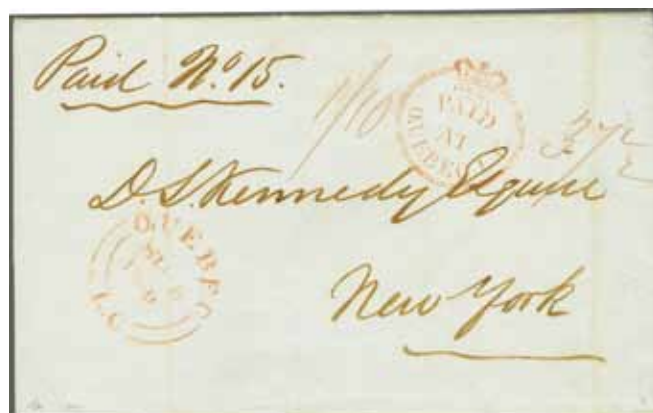 Paid No. 15.
1/10
PAID
AT
QUEBEC
D. S. Kennedy Esquire
QUEBEC
L.C
New York